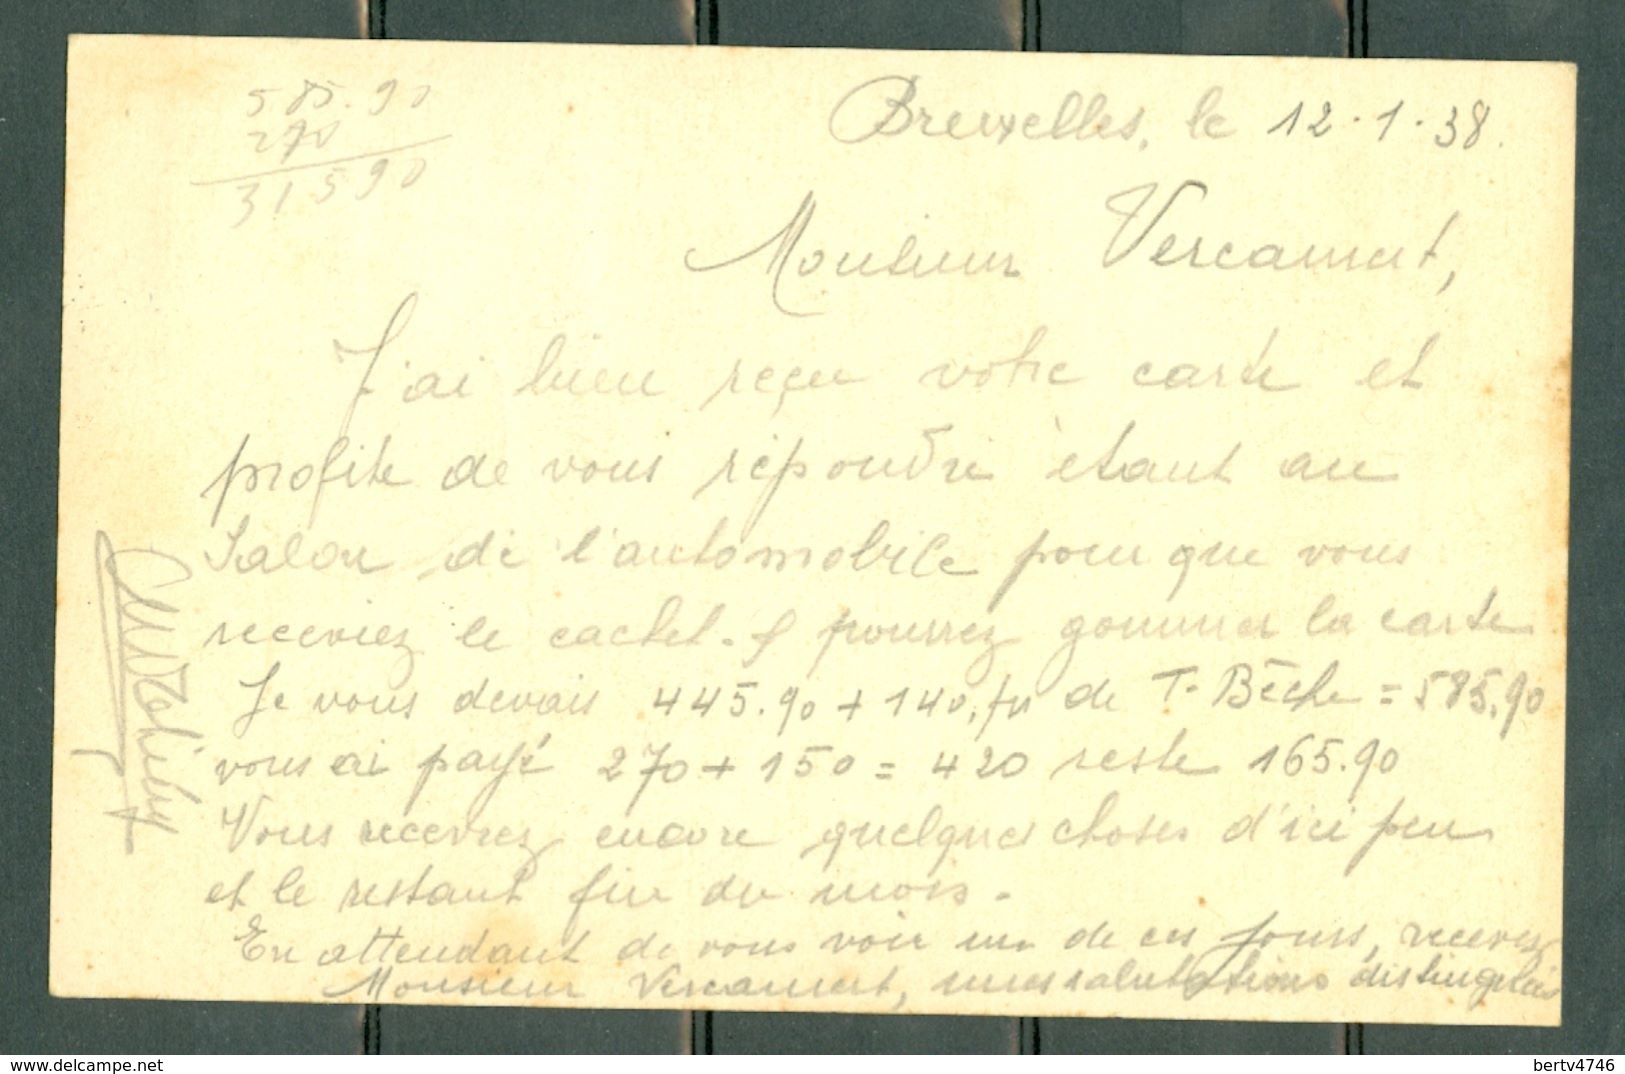 585.90
270
315 90
Bruxelles, le 12.1.38.
Monsieur Vercamert,
J'ai bien reçu votre carte et
profite de vous répondre étant au
Salon de l'automobile pour que vous
receviez le cachet. pourrez gommer la carte
Je vous devais 445.90 + 140. de T. Bèche = 585.90
vous ai payé 270 + 150 = 420 reste 165.90
Vous recevrez encore quelques choses d'ici peu
et le restant fin du mois.
En attendant de vous voir un de ces jours, recevez
Monsieur Vercamert, mes salutations distinguées
www.delcampe.net
bertv4746